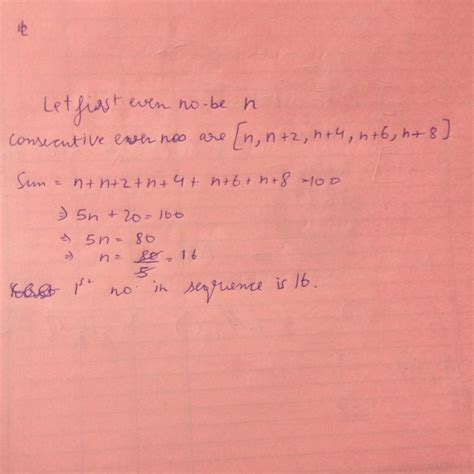 Let first even no. be n
consecutive even nos are [n, n+2, n+4, n+6, n+8]
Sum = n+n+2+n+4+ n+6+n+8 =100
⇒ 5n + 20 = 100
⇒ 5n = 80
⇒ n = 80/5 = 16
1st no. in sequence is 16.